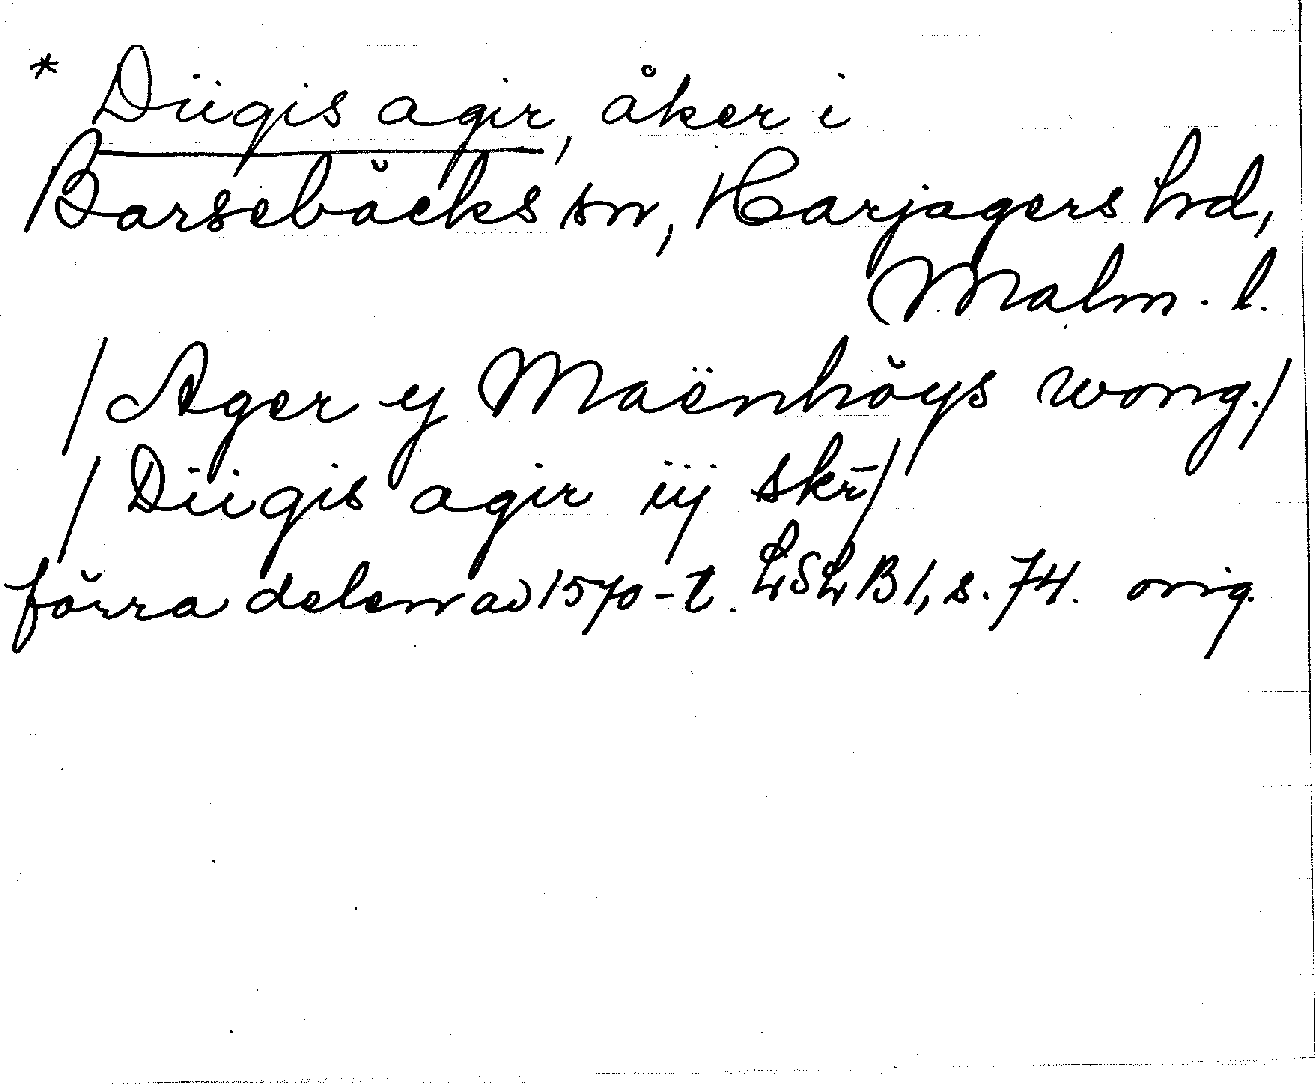 * Diigis agir, åker i
Barsebäcks sn, Harjagers hd,
Malm. l.
/Ager y Maënhöys wong./
/Diigis agir iij skr̄/
förra delen av 1570-t. LSLB1, s. 74. orig.